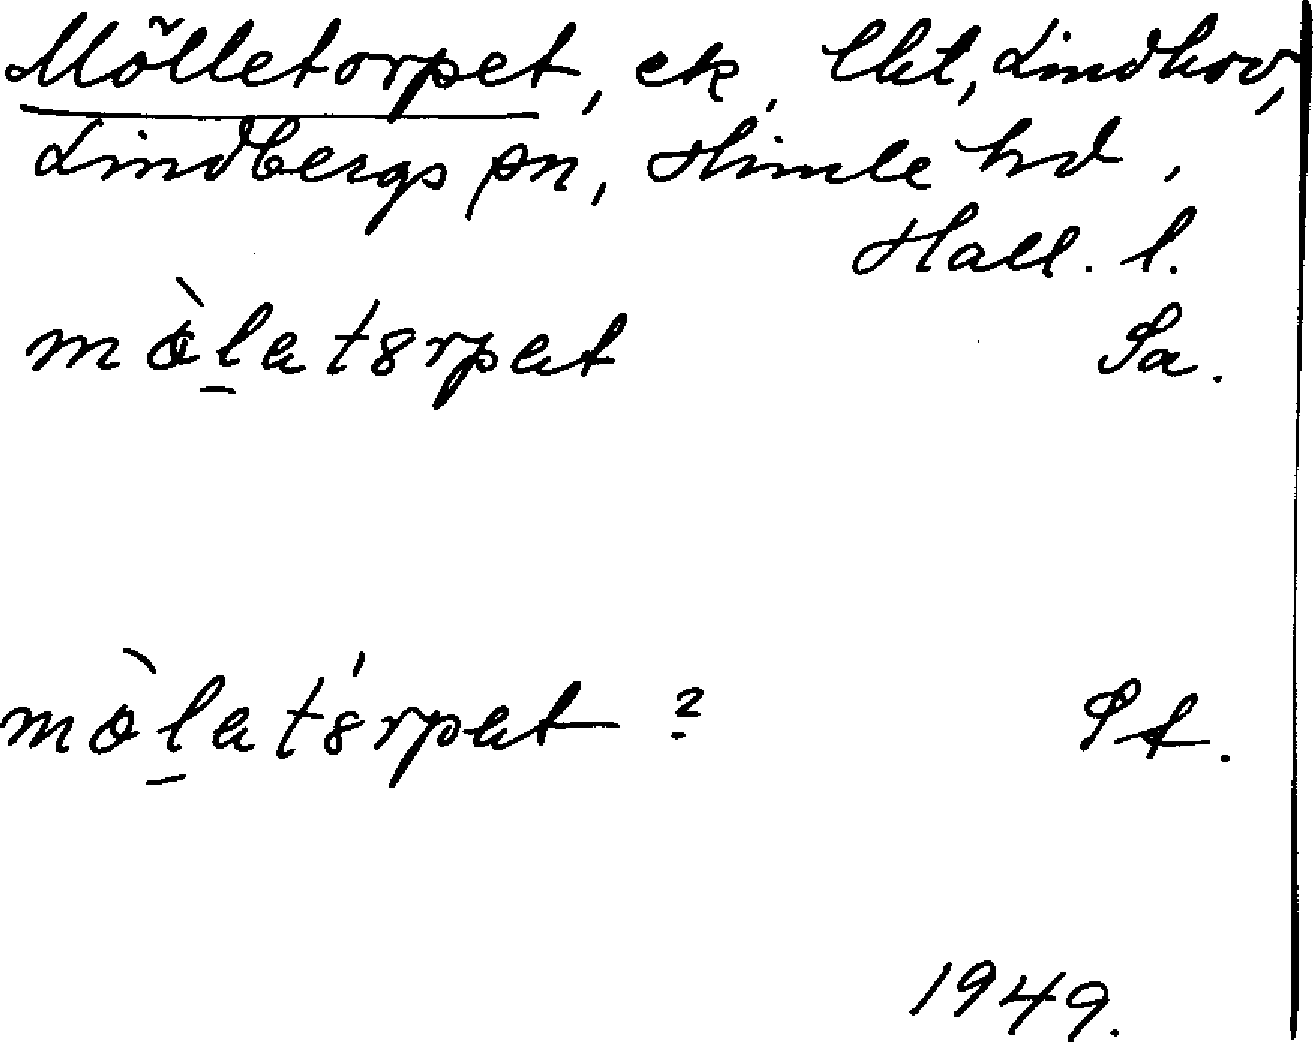 Mölletorpet, ek, lht, Lindhov,
Lindbergs sn, Himle hd,
Hall. l.
mòlatorpat Sa.
mòlatórpat ? St.
1949.